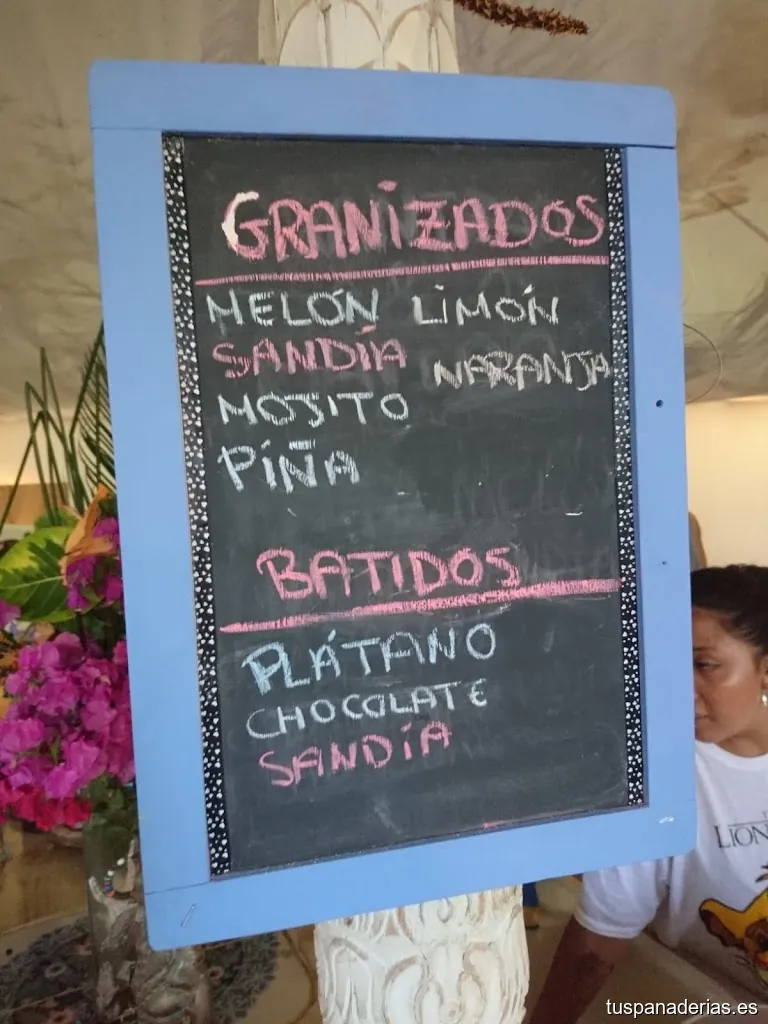 GRANIZADOS
MELÓN LIMÓN
SANDÍA NARANJA
MOJITO
PIÑA
BATIDOS
PLÁTANO
CHOCOLATE
SANDÍA
LION
tuspanaderias.es